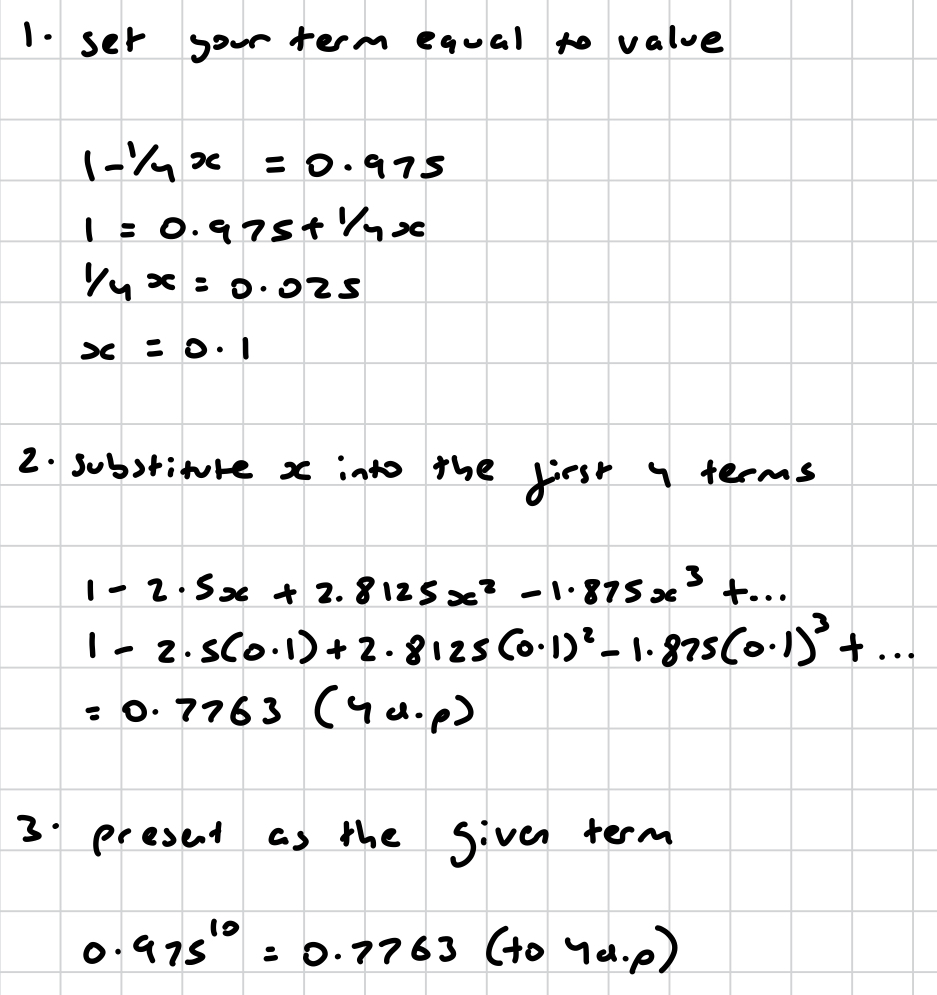 1. set your term equal to value
1-1/4 x = 0.975
1 = 0.975 + 1/4 x
1/4 x = 0.025
x = 0.1
2. substitute x into the first 4 terms
1 - 2.5x + 2.8125x² - 1.875x³ + ...
1 - 2.5(0.1) + 2.8125(0.1)² - 1.875(0.1)³ + ...
= 0.7763 (4 d.p)
3. present as the given term
0.975¹⁰ = 0.7763 (to 4d.p)